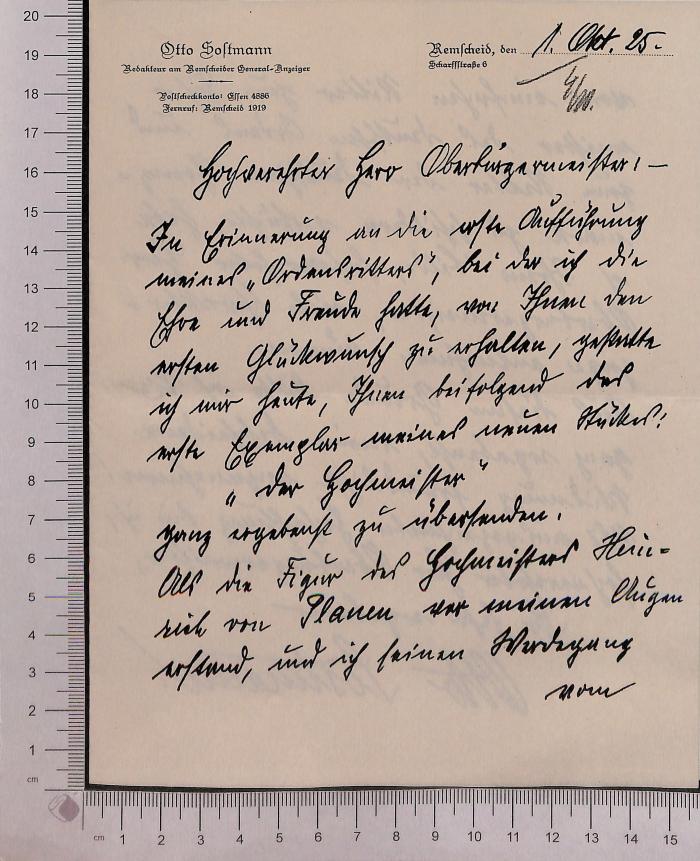 Otto Sostmann
Redakteur am Remscheider General-Anzeiger
Postscheckkonto: Essen 4886
Fernruf: Remscheid 1919
Remscheid, den 1. Okt. 25.
Scharffstraße 6
Hochverehrter Herr Oberbürgermeister! —
In Erinnerung an die erste Aufführung
meines „Ordensritters", bei der ich die
Ehre und Freude hatte, von Ihnen den
ersten Glückwunsch zu erhalten, gestatte
ich mir heute, Ihnen beifolgend das
erste Exemplar meines neuen Stückes:
„Der Hochmeister"
ganz ergebenst zu übersenden.
Als die Figur des Hochmeisters Hein-
rich von Plauen vor meinen Augen
erstand, und ich seinen Werdegang
vom
20
19
18
17
16
15
14
13
12
11
10
9
8
7
6
5
4
3
2
1
cm
cm 1 2 3 4 5 6 7 8 9 10 11 12 13 14 15